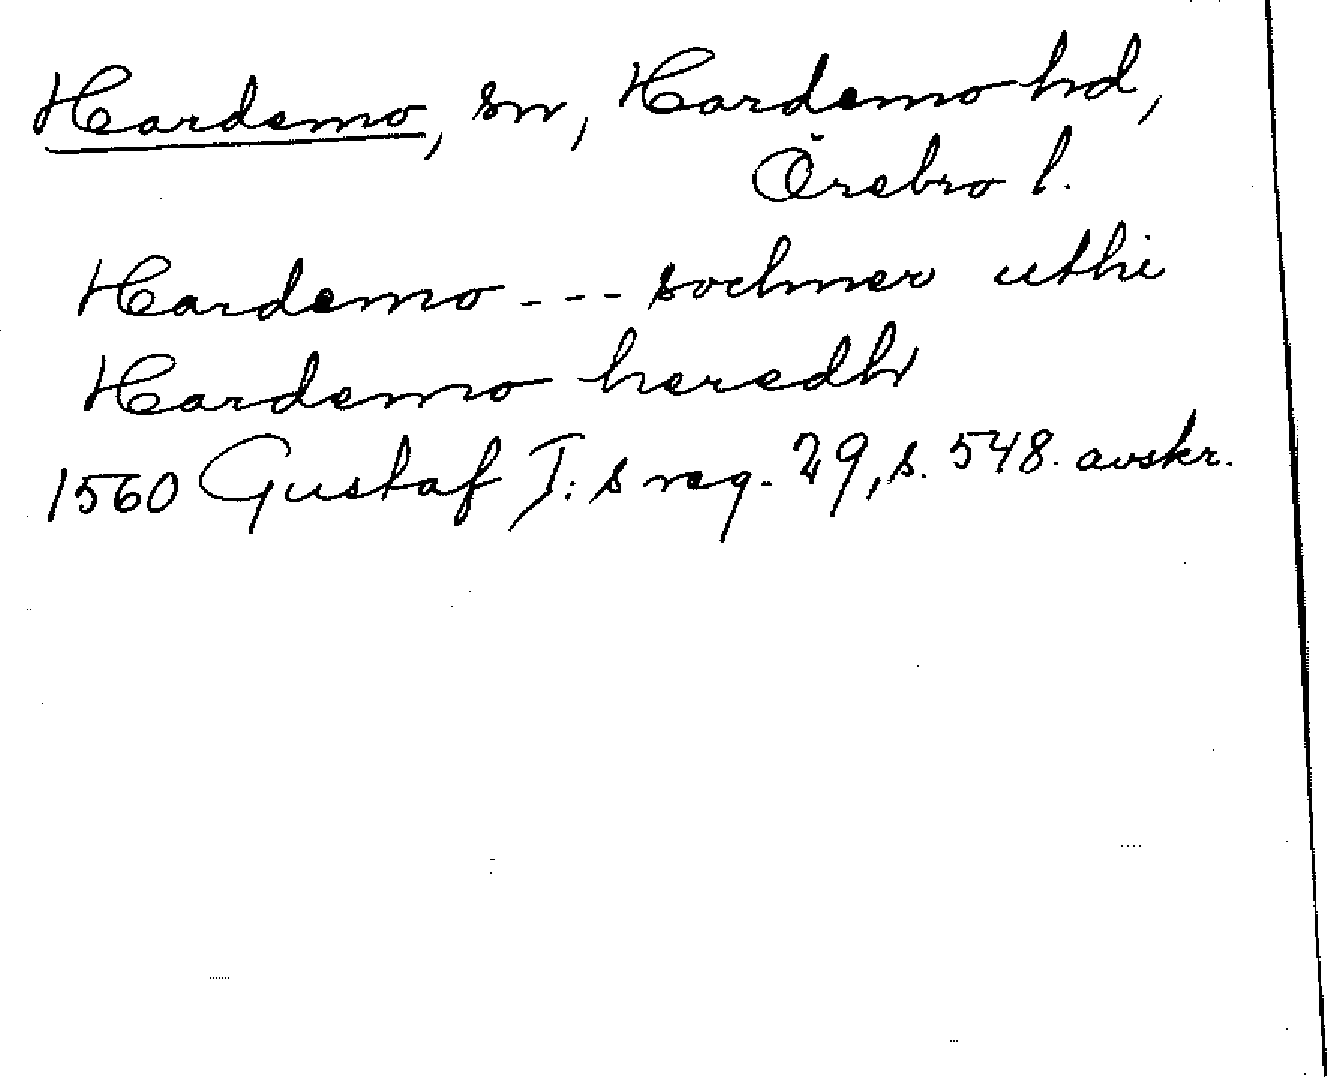 Hardemo, sn, Hardemo hd,
Örebro l.
Hardemo --- sochner uthi
Hardemo heredh
1560 Gustaf I:s reg. 29, s. 548. avskr.